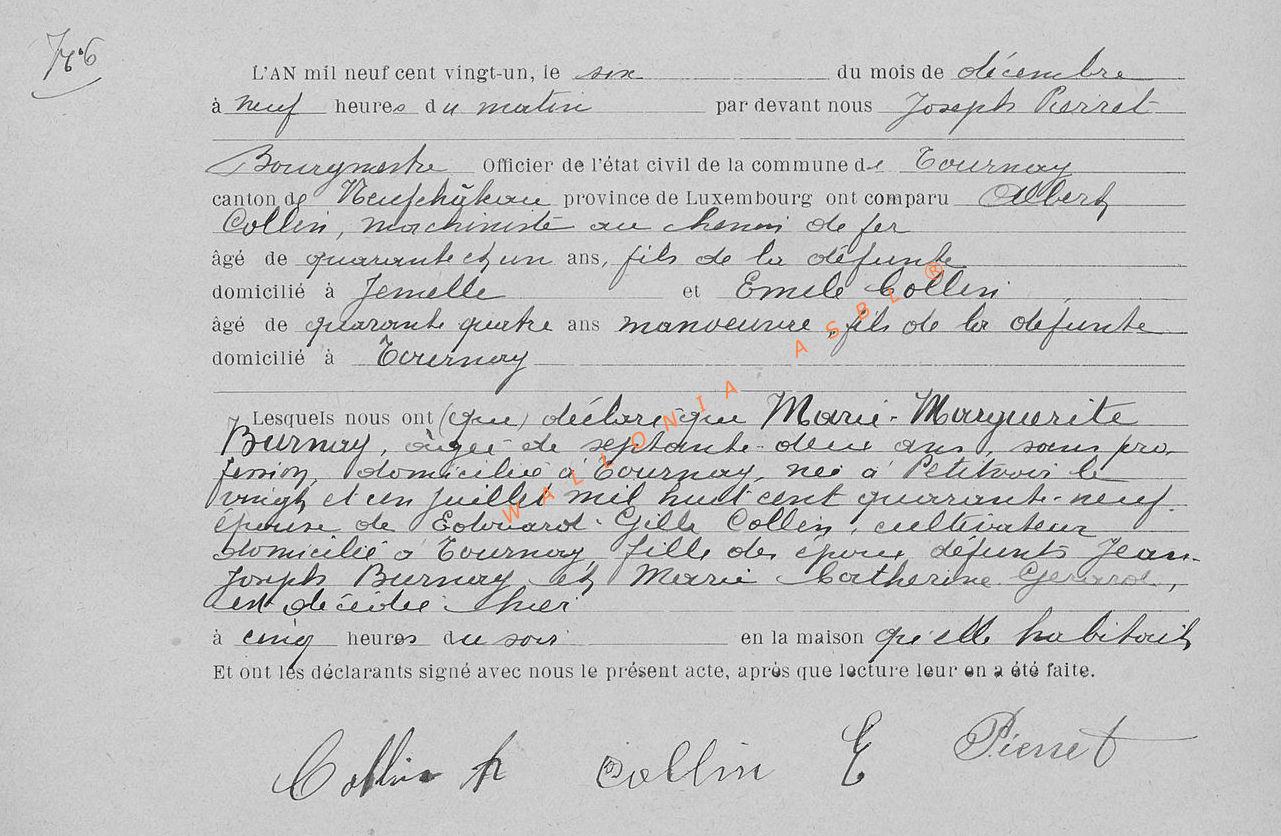 N° 6
L'AN mil neuf cent vingt-un, le six du mois de décembre
à neuf heures du matin par devant nous Joseph Pierret
Bourgmestre Officier de l'état civil de la commune de Tournay
canton de Neufchâteau province de Luxembourg ont comparu Albert
Collin, machiniste au chemin de fer
âgé de quarante et un ans, fils de la défunte
domicilié à Jemelle et Emile Collin
âgé de quarante quatre ans manoeuvre, fils de la défunte
domicilié à Tournay
Lesquels nous ont (que) déclaré que Marie-Marguerite
Burnay, âgée de septante-deux ans, sans pro-
fession, domiciliée à Tournay, née à Petitvoir le
vingt et un juillet mil huit cent quarante-neuf
épouse de Edouard-Gille Collin, cultivateur
domicilié à Tournay, fille des époux défunts Jean-
Joseph Burnay et Marie Catherine Gerard,
est décédée hier
à cinq heures du soir en la maison qu'elle habitait
Et ont les déclarants signé avec nous le présent acte, après que lecture leur en a été faite.
Collin A Collin E Pierret
WALLONIA ASBL ®